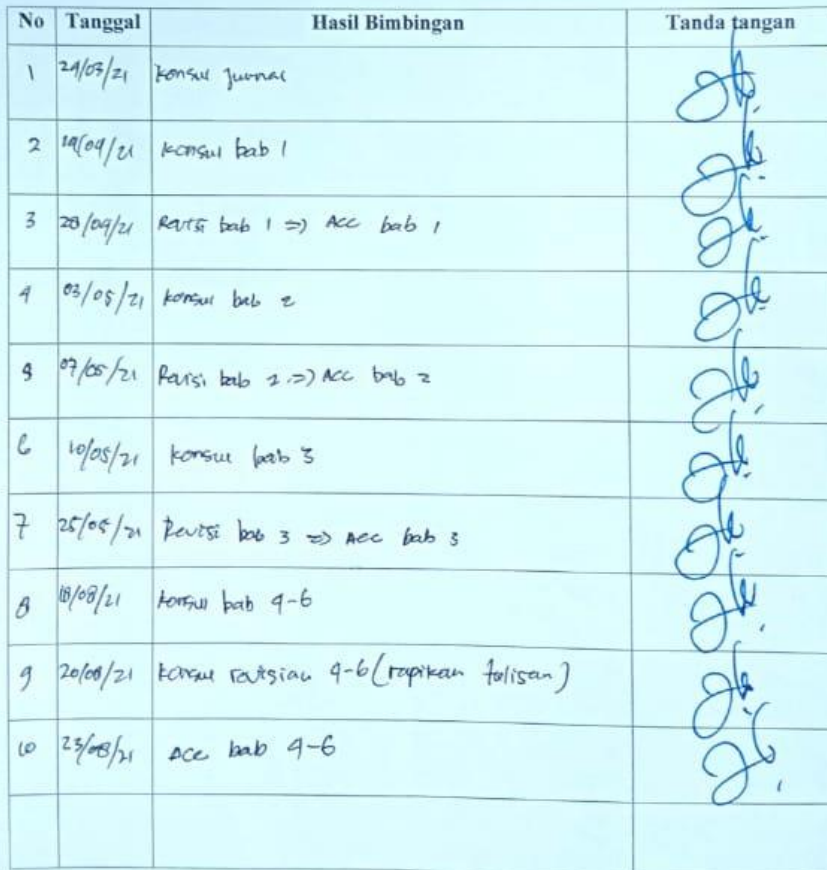 No Tanggal Hasil Bimbingan Tanda tangan
1 29/03/21 Konsul Jurnal
2 19/04/21 Konsul bab 1
3 28/04/21 Revisi bab 1 => Acc bab 1
4 03/05/21 Konsul bab 2
5 07/05/21 Revisi bab 2 => Acc bab 2
6 10/05/21 Konsul bab 3
7 25/05/21 Revisi bab 3 => Acc bab 3
8 18/08/21 Konsul bab 4-6
9 20/08/21 Konsul revisian 4-6 (rapikan tulisan)
10 23/08/21 Acc bab 4-6